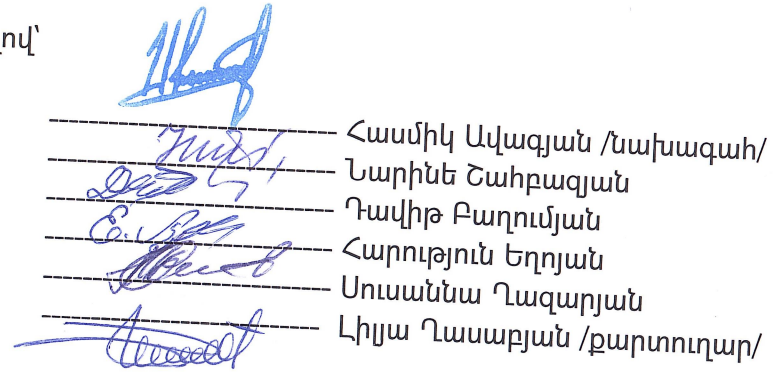 ով՝
Հասմիկ Ավագյան /նախագահ/
Նարինե Շահբազյան
Դավիթ Բաղումյան
Հարություն Եղոյան
Սուսաննա Ղազարյան
Լիլյա Ղասաբյան /քարտուղար/